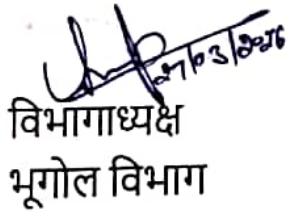 27/03/2026
विभागाध्यक्ष
भूगोल विभाग